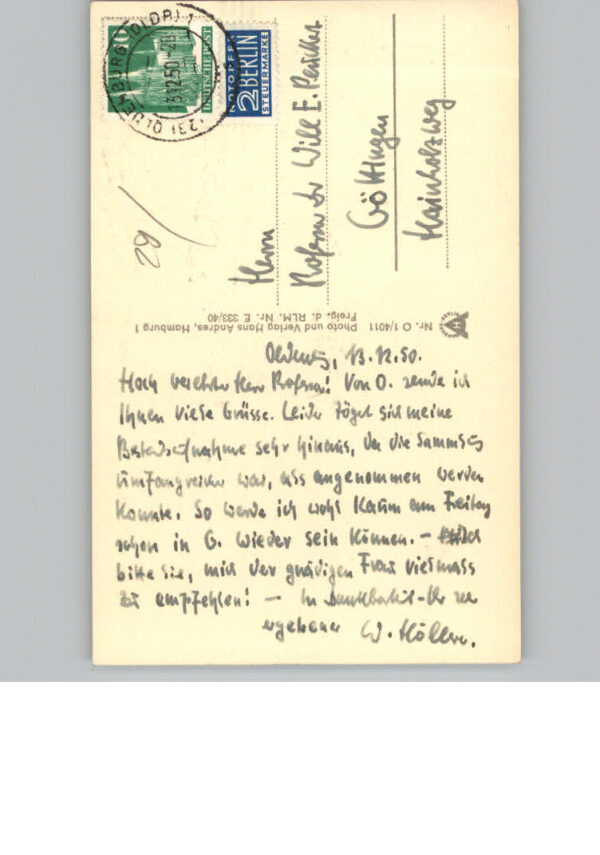 (23) OLDENBURG (OLDB) 1
13.12.50
10
DEUTSCHE POST
NOTOPFER
2 BERLIN
STEUERMARKE
29
Herrn
Professor Dr Will E.
Göttingen
Hainholzweg
Nr. O 1/4011 Photo und Verlag Hans Andres, Hamburg 1
Freig. d. RLM. Nr. E 333/40
Oldenbg, 13.12.50.
Hoch verehrter Herr Professor! Von O. sende ich
Ihnen viele Grüsse. Leider zögert sich meine
Bestandsaufnahme sehr hinaus, da die Sammlg
umfangreicher war, als angenommen werden
konnte. So werde ich wohl kaum am Freitag
schon in G. wieder sein können. – Ich
bitte Sie, mich der gnädigen Frau vielmals
zu empfehlen! – In Dankbarkeit – Ihr sehr
ergebener W.